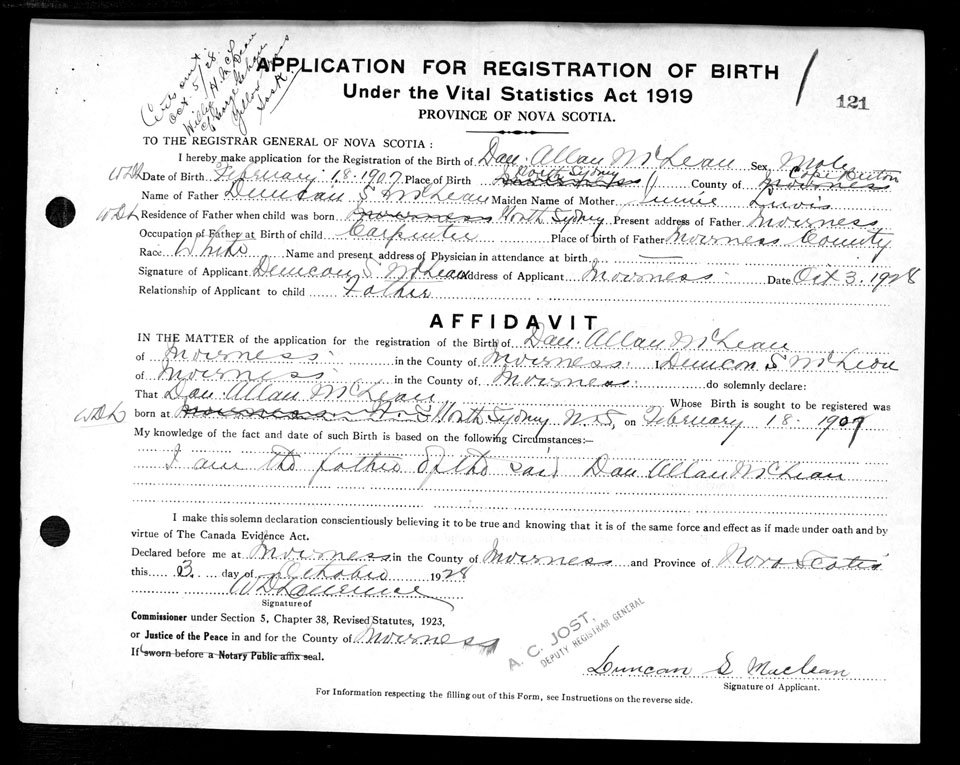 Oct. 5/28.
APPLICATION FOR REGISTRATION OF BIRTH
Under the Vital Statistics Act 1919
PROVINCE OF NOVA SCOTIA.
121
TO THE REGISTRAR GENERAL OF NOVA SCOTIA:
I hereby make application for the Registration of the Birth of Dan. Allan McLean Sex Male
WDL Date of Birth February 18. 1907 Place of Birth North Sydney County of Cape Breton Inverness
Name of Father Duncan S McLean Maiden Name of Mother
WDL Residence of Father when child was born Inverness North Sydney Present address of Father Inverness
Occupation of Father at Birth of child Carpenter Place of birth of Father Inverness County
Race White Name and present address of Physician in attendance at birth. —
Signature of Applicant Duncan S McLean Address of Applicant Inverness Date Oct 3. 1928
Relationship of Applicant to child Father
AFFIDAVIT
IN THE MATTER of the application for the registration of the Birth of Dan. Allan McLean
of Inverness in the County of Inverness I Duncan S McLean
of Inverness in the County of Inverness do solemnly declare:
That Dan Allan McLean Whose Birth is sought to be registered was
WDL born at Inverness N.S North Sydney N.S, on February 18. 1907
My knowledge of the fact and date of such Birth is based on the following Circumstances:—
I am the father of the said Dan Allan McLean
I make this solemn declaration conscientiously believing it to be true and knowing that it is of the same force and effect as if made under oath and by
virtue of The Canada Evidence Act.
Declared before me at Inverness in the County of Inverness and Province of Nova Scotia
this 3. day of October 1928
WD Lawrence
Signature of
Commissioner under Section 5, Chapter 38, Revised Statutes, 1923,
or Justice of the Peace in and for the County of Inverness
If sworn before a Notary Public affix seal.
A. C. JOST,
DEPUTY REGISTRAR GENERAL
Duncan S Maclean
Signature of Applicant.
For Information respecting the filling out of this Form, see Instructions on the reverse side.